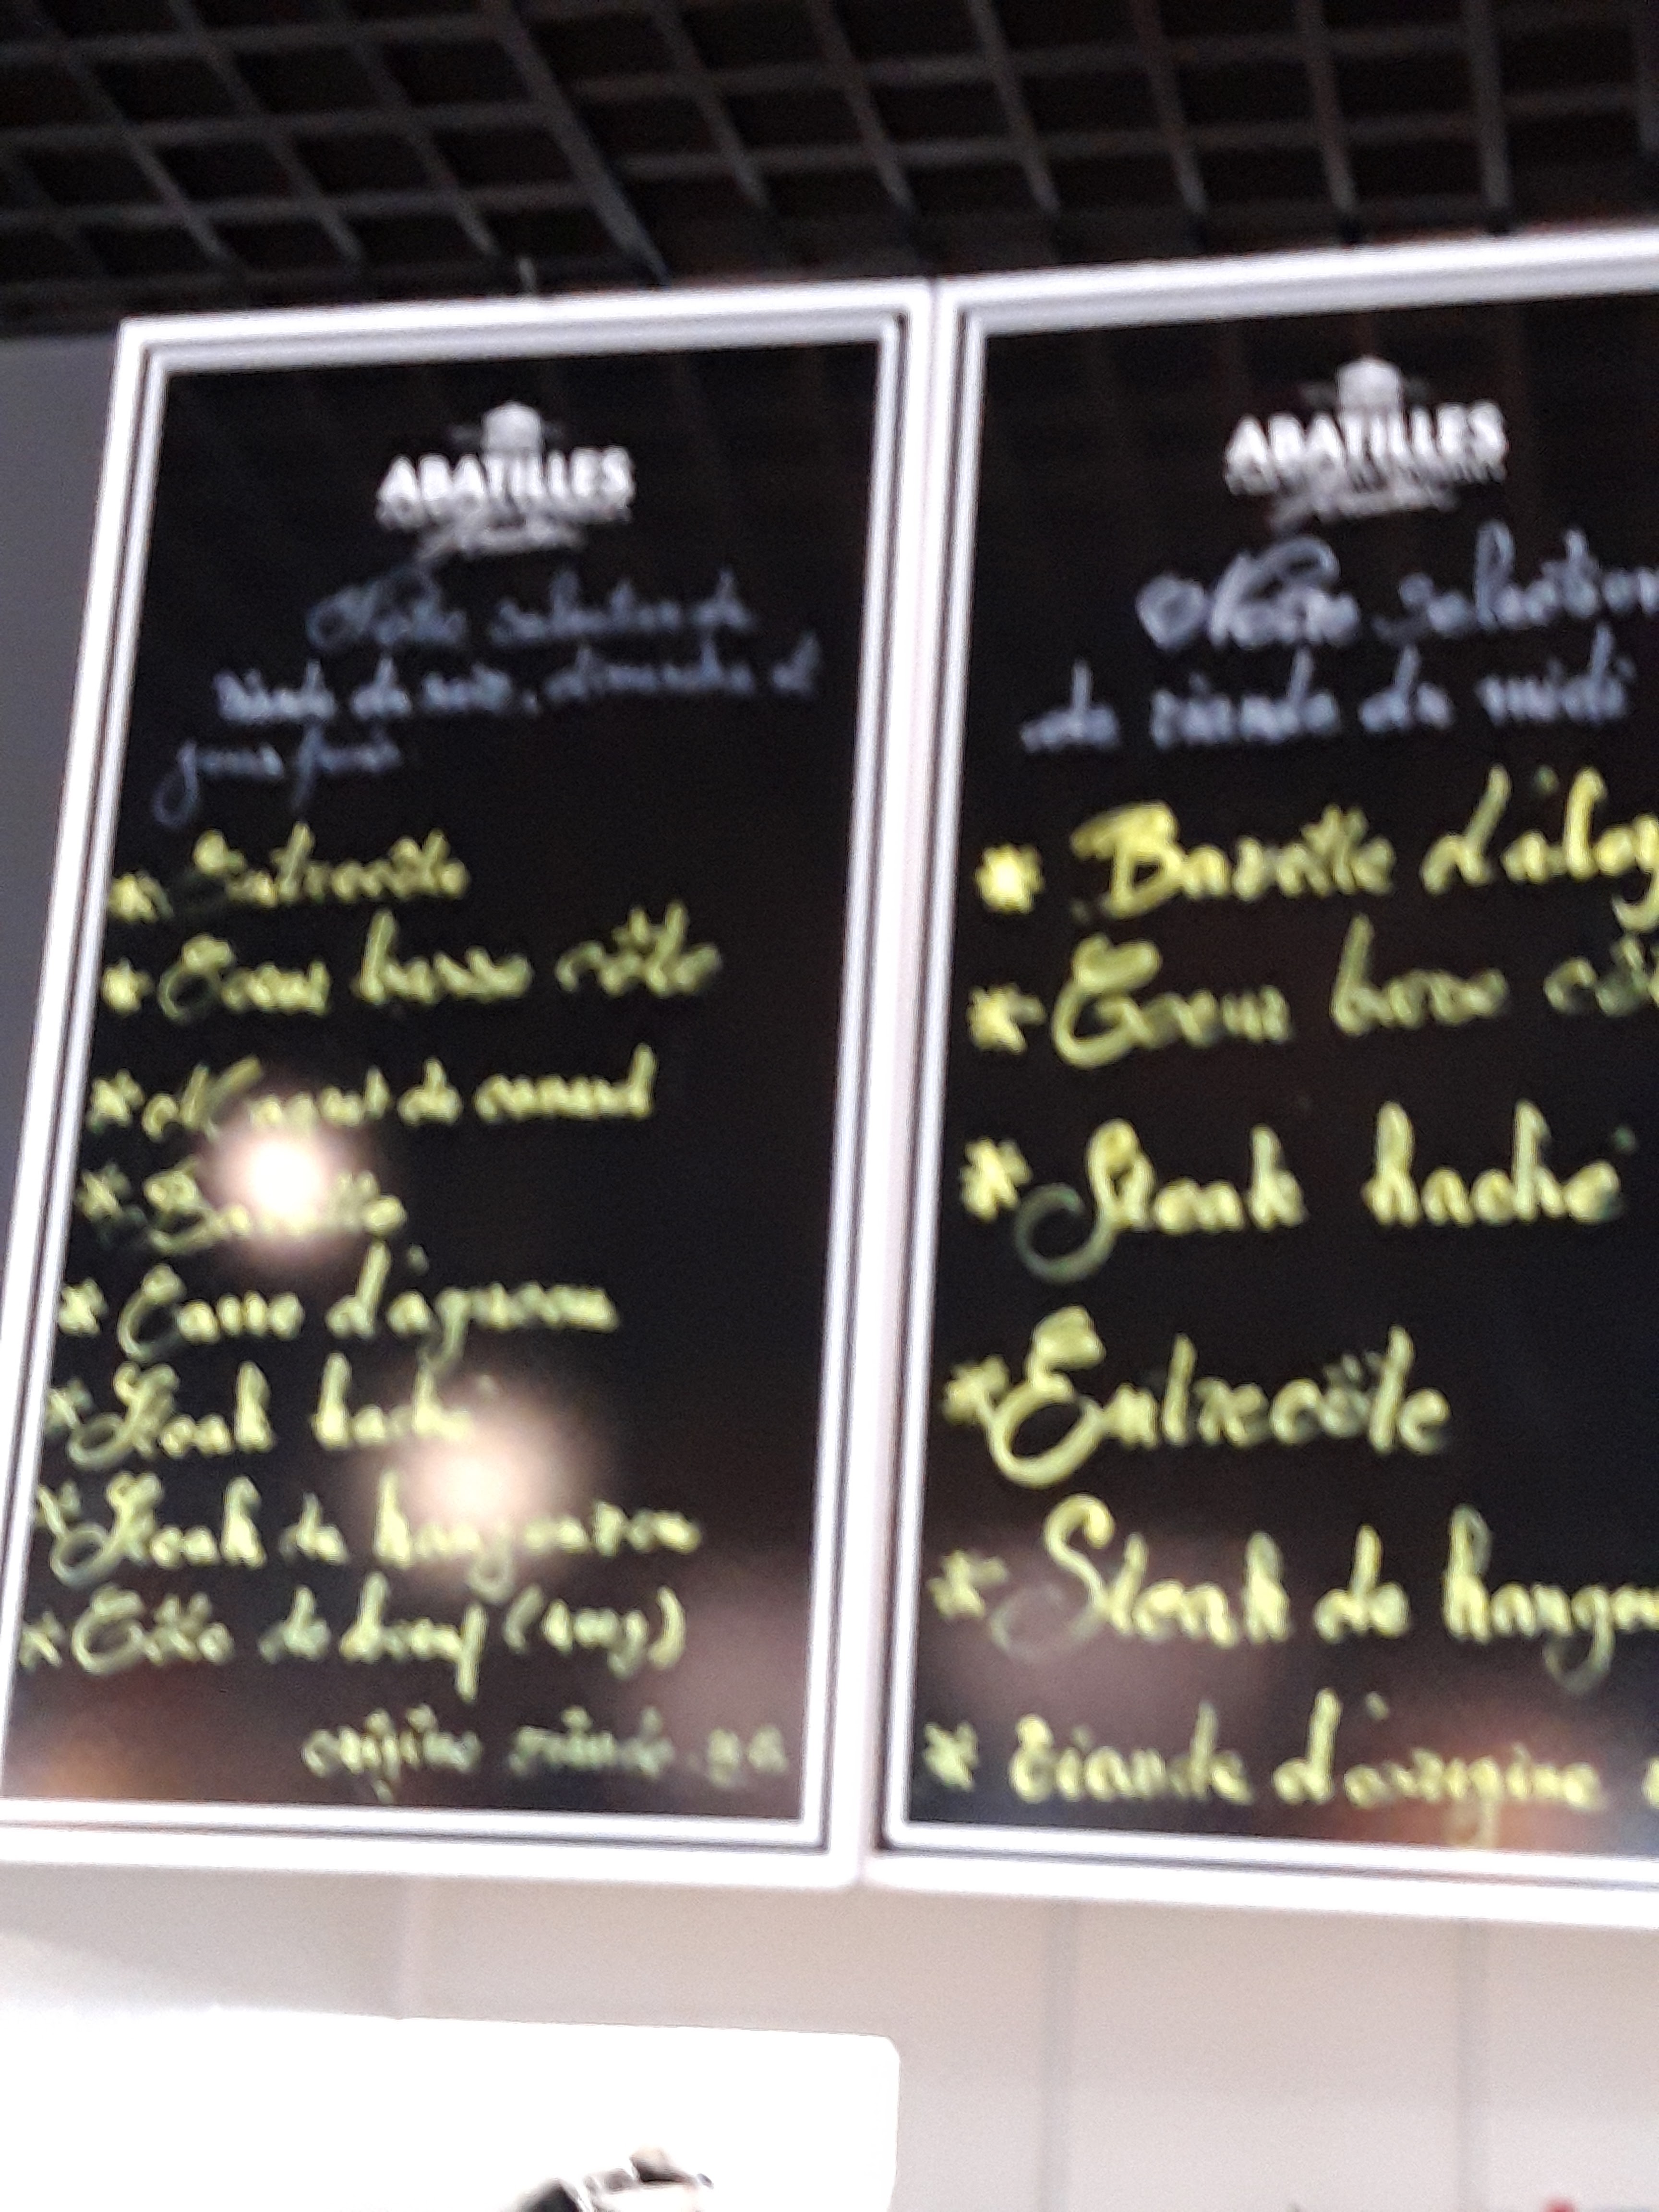 ABATILLES
Notre selection de
viande du soir, dimanche et
jours feriés
* Entrecôte
* Coeur basse côte
* Magret de canard
* Bavette
* Carre d'agneau
* Steak haché
* Steak de kangourou
* Côte de boeuf
origine viande
ABATILLES
Notre selection
de viande du midi
* Bavette d'aloy
* Coeur basse cô
* Steak haché
* Entrecôte
* Steak de kangou
* Viande d'origine